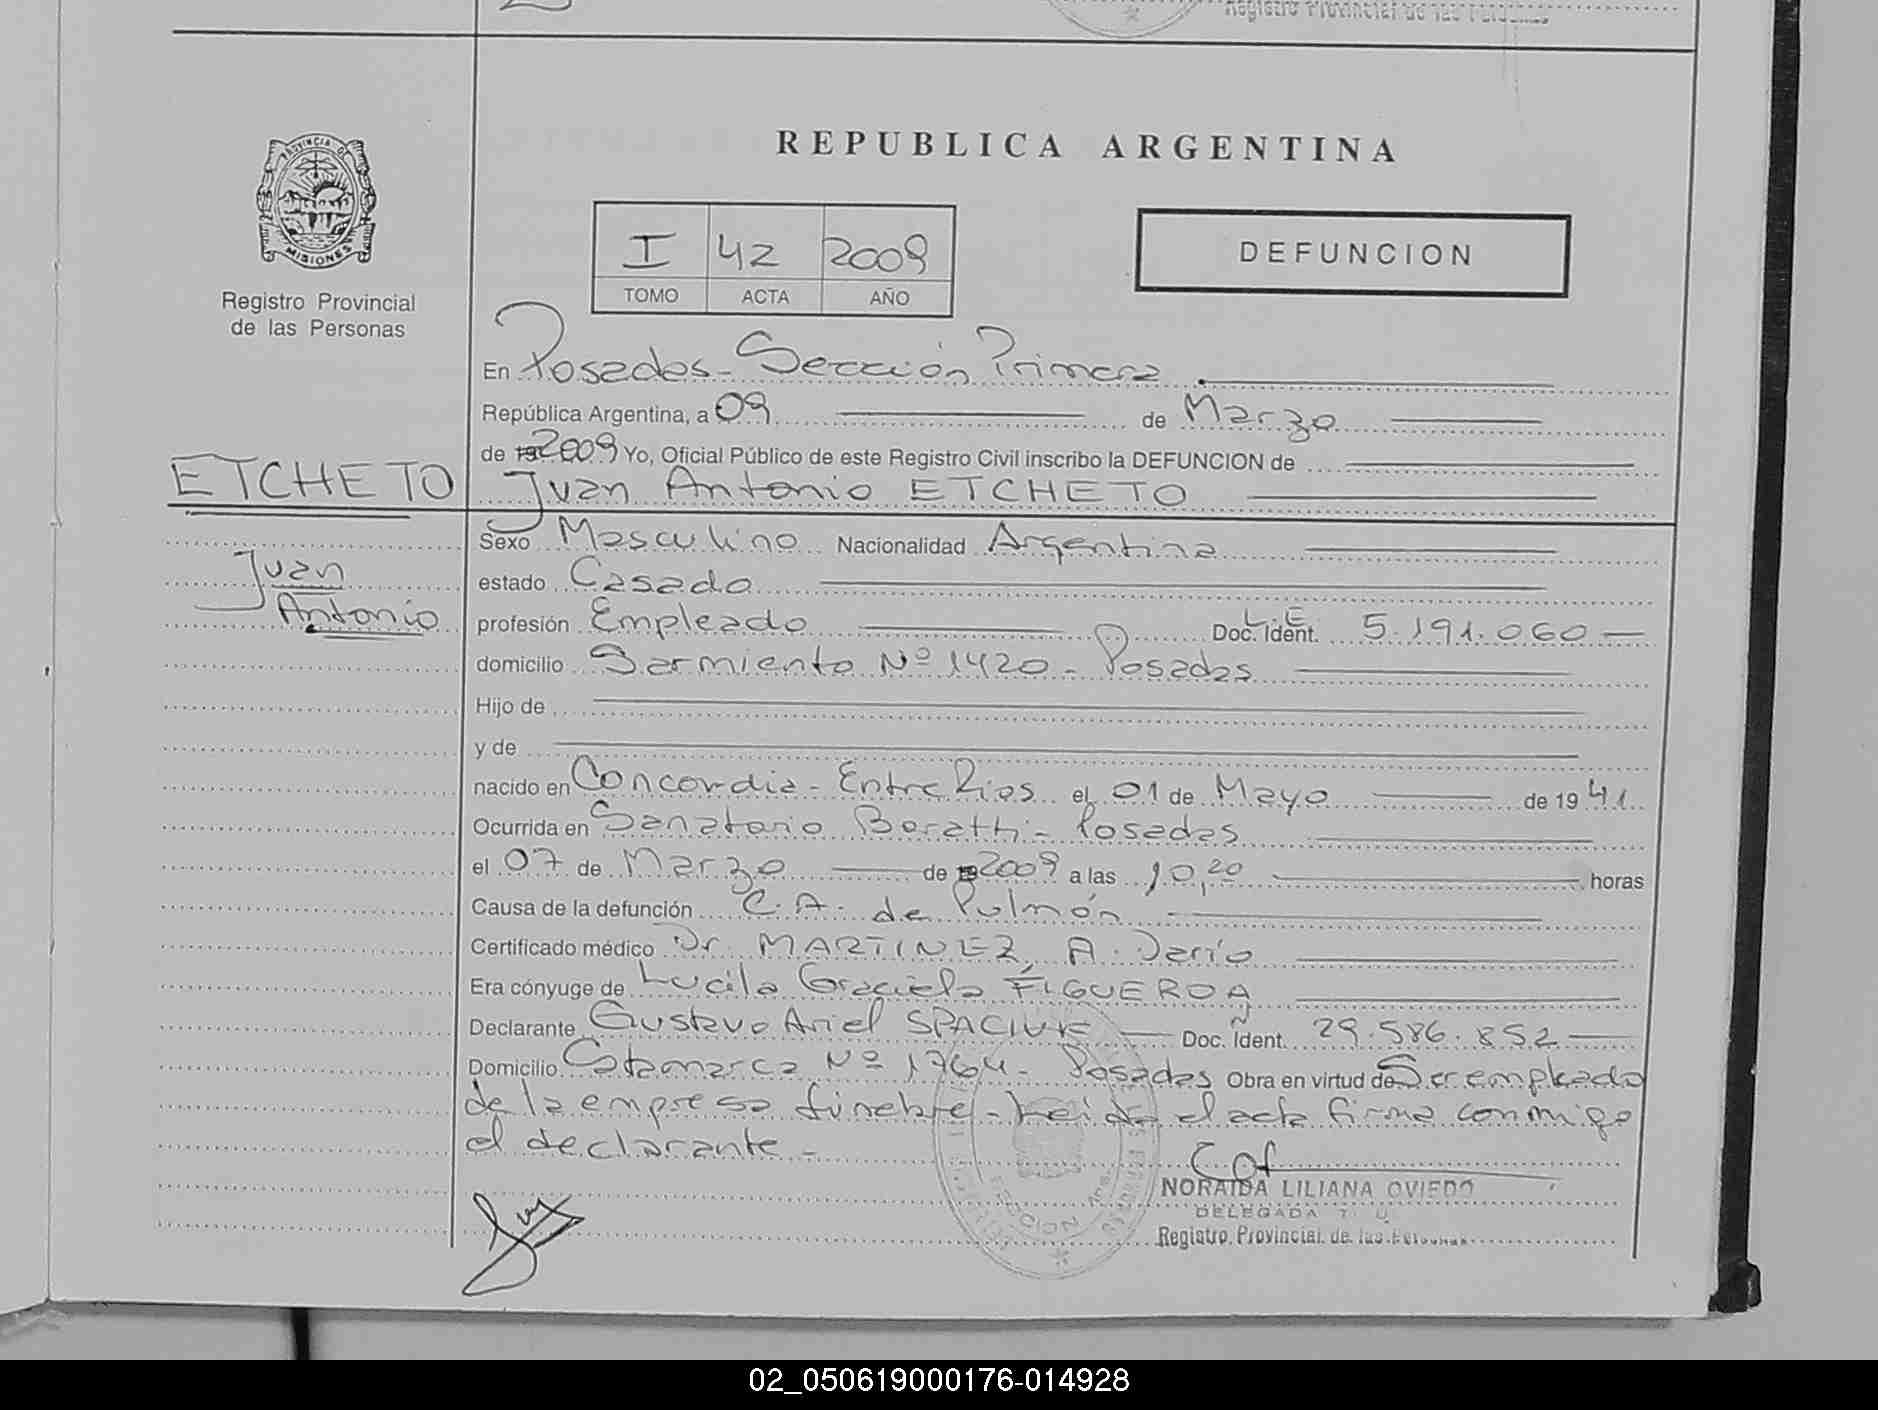 Registro Provincial de las Personas
REPUBLICA ARGENTINA
PROVINCIA DE
MISIONES
Registro Provincial
de las Personas
I 42 2009
TOMO ACTA AÑO
DEFUNCION
En Posadas - Sección Primera.
República Argentina, a 09 de Marzo
de 2009 Yo, Oficial Público de este Registro Civil inscribo la DEFUNCION de
ETCHETO
Juan Antonio ETCHETO
Juan
Antonio
Sexo Masculino Nacionalidad Argentina
estado Casado
profesión Empleado Doc. Ident. L.E 5.191.060
domicilio Sarmiento Nº 1420 - Posadas
Hijo de
y de
nacido en Concordia - Entre Rios el 01 de Mayo de 1941
Ocurrida en Sanatorio Boratti - Posadas
el 07 de Marzo de 2009 a las 10,20 horas
Causa de la defunción C.A. de Pulmón
Certificado médico Dr. MARTINEZ, A. Darío
Era cónyuge de Lucila Graciela FIGUEROA
Declarante Gustavo Ariel SPACIUK Doc. Ident. 29.586.852
Domicilio Catamarca Nº 1764 - Posadas Obra en virtud de Ser empleado
de la empresa fúnebre - Leida el acta firma conmigo
el declarante -
NORAIDA LILIANA OVIEDO
DELEGADA
Registro Provincial de las Personas
02_050619000176-014928